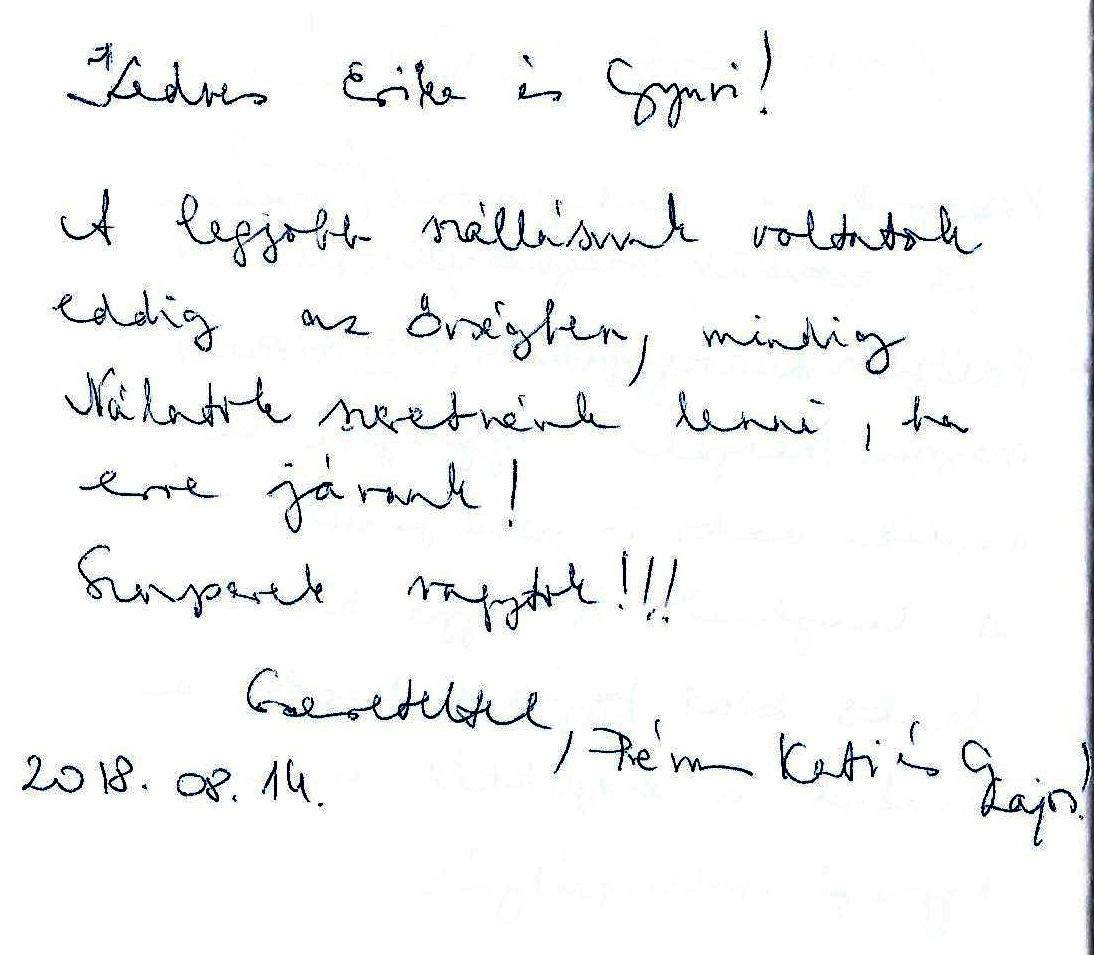 Kedves Erika és Gyuri!
A legjobb szállásunk voltatok
eddig az Őrségben, mindig
Nálatok szeretnénk lenni, ha
erre járunk!
Szuperek vagytok!!!
Szeretettel,
Kati és
Lajos!
2018. 08. 14.